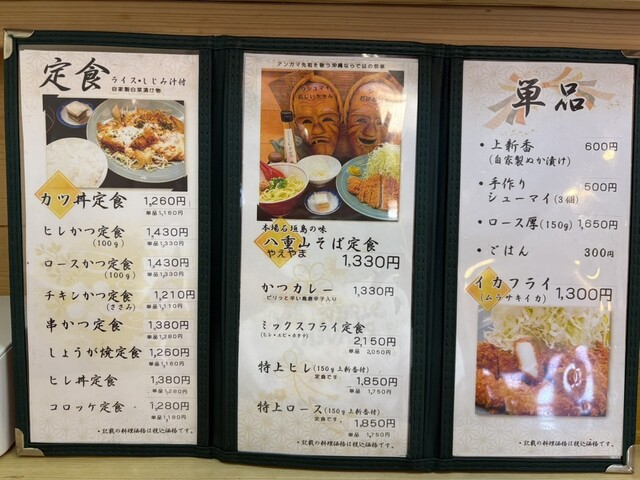 定食
ライス・しじみ汁付
自家製白菜漬け物
カツ丼定食 1,260円
単品 1,160円
ヒレかつ定食 1,430円
(100g) 単品 1,330円
ロースかつ定食 1,430円
(100g) 単品 1,330円
チキンかつ定食 1,210円
(ささみ) 単品 1,110円
串かつ定食 1,380円
単品 1,280円
しょうが焼定食 1,260円
単品 1,160円
ヒレ丼定食 1,380円
単品 1,280円
コロッケ定食 1,280円
単品 1,180円
・記載の料理価格は税込価格です。
アンガマ先祖を敬う沖縄ならではの祭事
本場石垣島の味
八重山そば定食
やえやま
1,330円
かつカレー 1,330円
ピリッと辛い島唐辛子入り
ミックスフライ定食
(ヒレ・エビ・ホタテ)
2,150円
単品 2,050円
特上ヒレ(150g上新香付)
定食です 1,850円
単品 1,750円
特上ロース(150g上新香付)
定食です 1,850円
単品 1,750円
・記載の料理価格は税込価格です。
単品
・上新香 600円
(自家製ぬか漬け)
・手作り 500円
シューマイ(3個)
・ロース厚(150g) 1,650円
・ごはん 300円
イカフライ
(ムラサキイカ) 1,300円
・記載の料理価格は税込価格です。